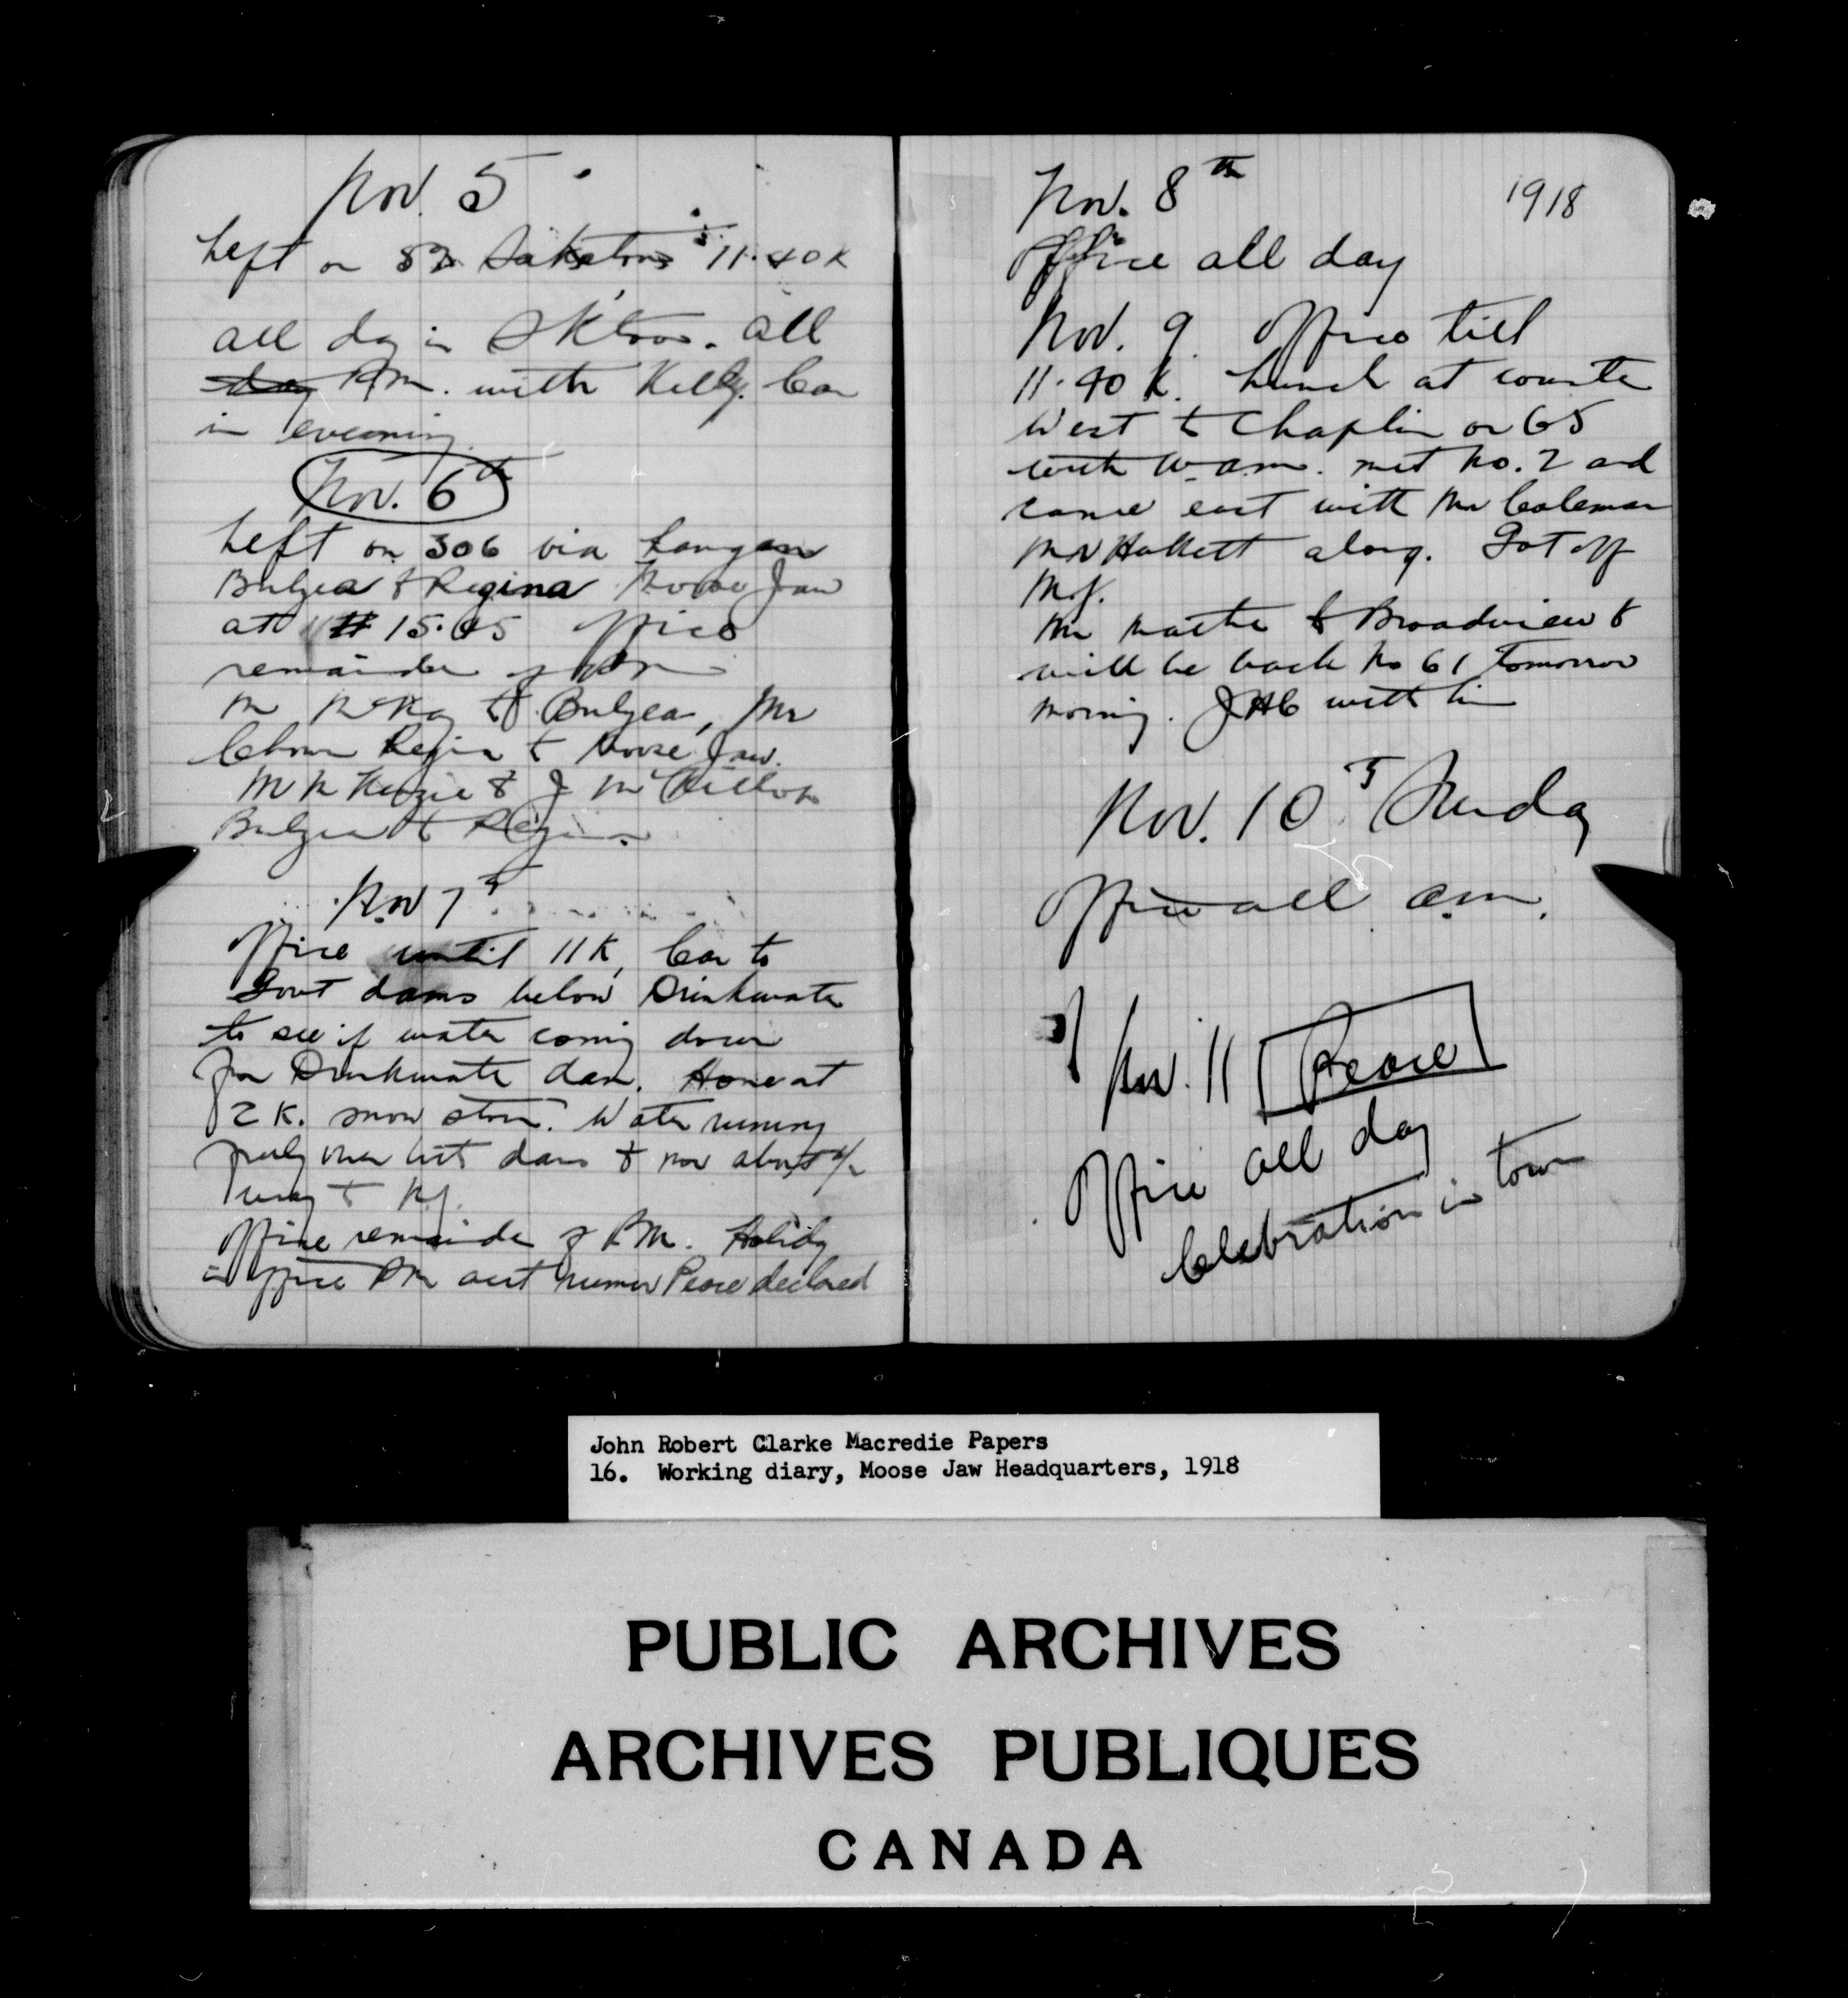 Nov. 5
Left on 82 Saskatoon 11.40 K
all day in Sktoon. all
day P.M. with Kelly. Car
in evening.
Nov. 6th
Left on 306 via Langan
Bulyea & Regina Moose Jaw
at 15.05 office
remainder of
Mr McKay to Bulyea, Mr
Regina to Moose Jaw.
McKenzie & J
Bulyea to Regina
Nov 7th
office until 11 K, Car to
Govt dams below Drinkwater
to see if water coming down
for Drinkwater dam. Home at
2 K. snow storm. Water running
freely over dam & now about
way to M.J.
Office remainder of P.M. Holiday
in office PM acct rumor Peace declared
Nov. 8th 1918
Office all day
Nov. 9. Office till
11.40 K. Lunch at counter
West to Chaplin on 65
with W.A.M. met No. 2 and
came east with Mr Coleman
Mr Hallett along. Got off
M.J.
Mr Mather to Broadview &
will be back No 61 tomorrow
morning. JHC with him
Nov. 10 Sunday
Office all a.m.
Nov. 11 Peace
Office all day
Celebration in town
John Robert Clarke Macredie Papers
16. Working diary, Moose Jaw Headquarters, 1918
PUBLIC ARCHIVES
ARCHIVES PUBLIQUES
CANADA